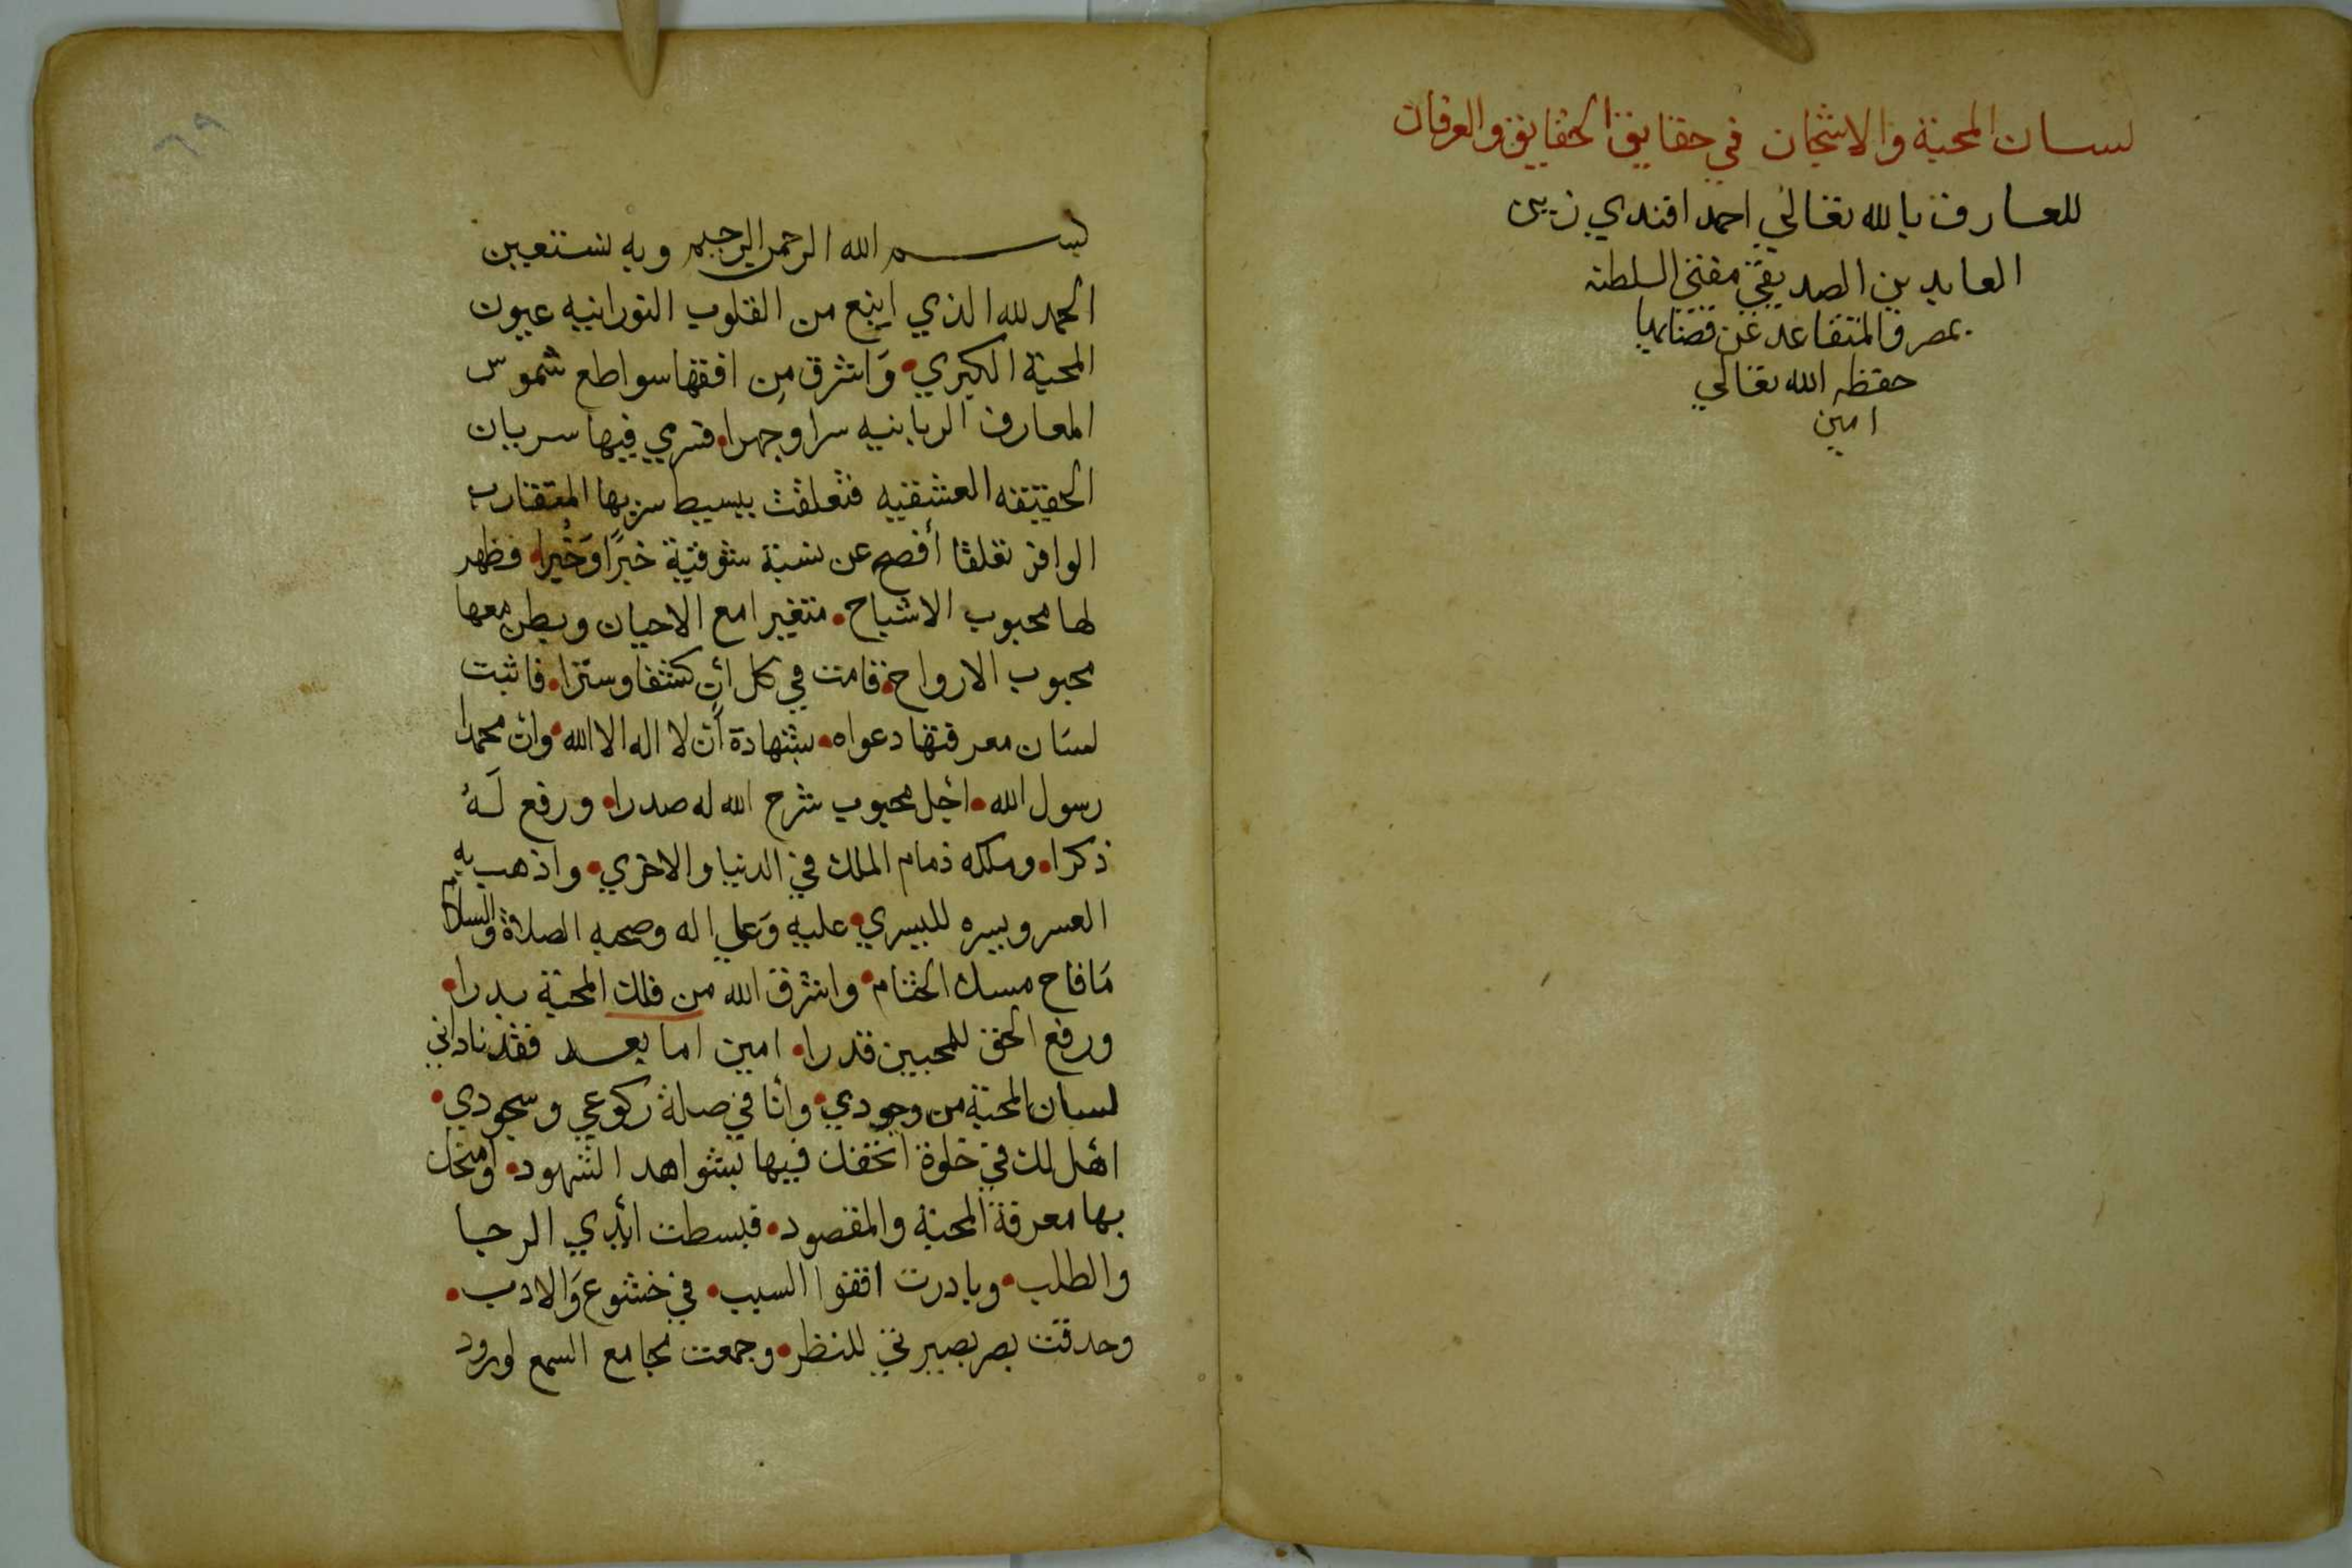 لسان المحبة والاشجان في حقايق الحقايق والعرفان
للعارف بالله تعالي احمد افندي زين
العابدين الصديقي مفتي السلطنه
بمصر والمتقاعد عن قضايها
حفظه الله تعالي
امين
٦٩
بسم الله الرحمن الرحيم وبه نستعين
الحمد لله الذي اينع من القلوب النورانيه عيون
المحبة الكبري • وَاشرق مِن افقها سواطع شموس
المعارف الربانيه سرا وجهرا • فسري فيها سريان
الحقيقه العشقيه فتعلقت ببسيط سربها المتقارب
الوافر تعلقا أفصح عن نسبة شوقية خبرًا وَخُبرا • فظهر
لها محبوب الاشباح • متغيرا مع الاحيان وبطن معها
محبوب الارواح • فقامت في كل أن كشفا وسترا • فاثبت
لسان معرفتها دعواه • بشهادة أن لا اله الا الله • وان محمدا
رسول الله • اجل محبوب شرح الله له صدرا • ورفع لَهُ
ذكرا • وملكه ذمام الملك في الدنيا والاخري • واذهب به
العسر ويسره لليسري • عليه وَعلي اله وصحبه الصلاة والسلام
مَا فاح مسك الختام • واشرق الله من فلك المحبة بدرا •
ورفع الحق للمحبين قدرا • امين اما بعد فقد ناداني
لسان المحبة من وجودي • وأنا في صلة ركوعي وسجودي •
اهل لك في خلوة اتحفك فيها بشواهد الشهود • وامنحك
بها معرفة المحبة والمقصود • فبسطت ايدي الرجا
والطلب • وبادرت اقفوا السبب • في خشوع وَالادب •
وحدقت بصر بصيرتي للنظر • وجمعت مجامع السمع لورود